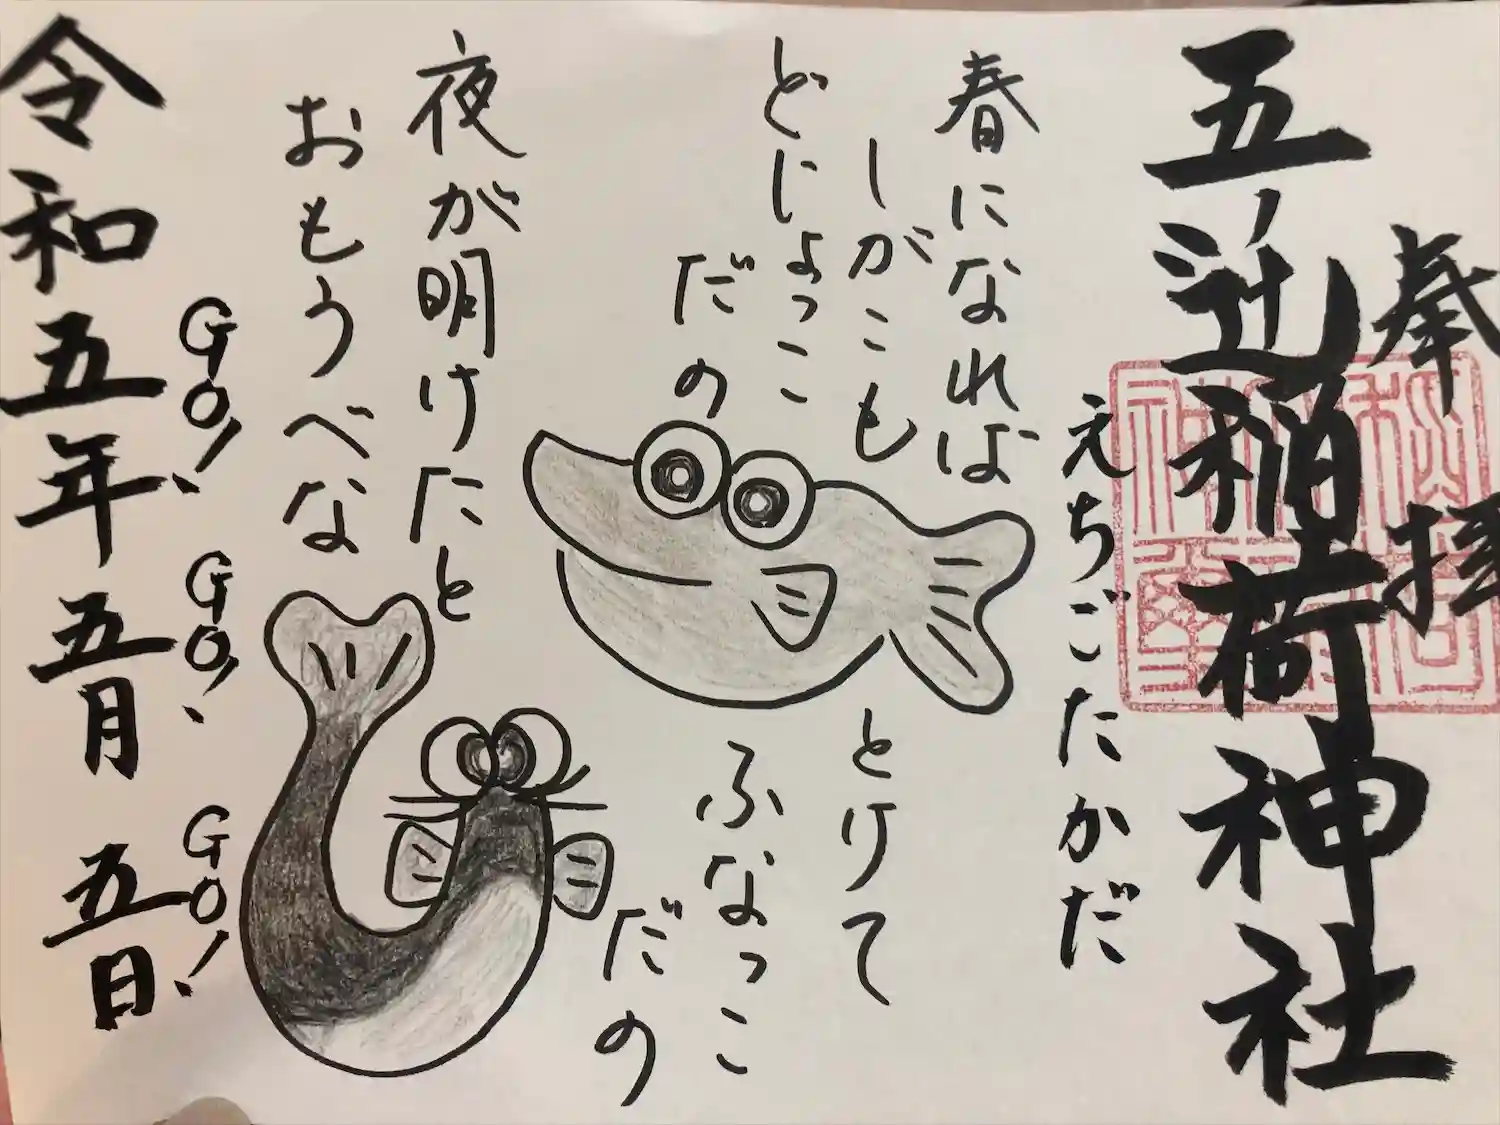 奉拝
五辻稲荷神社
えちごたかだ
春になれば
しがこも
とけて
どじょっこ
だの
ふなっこ
だの
夜が明けたと
おもうべな
GO! GO! GO!
令和五年五月五日